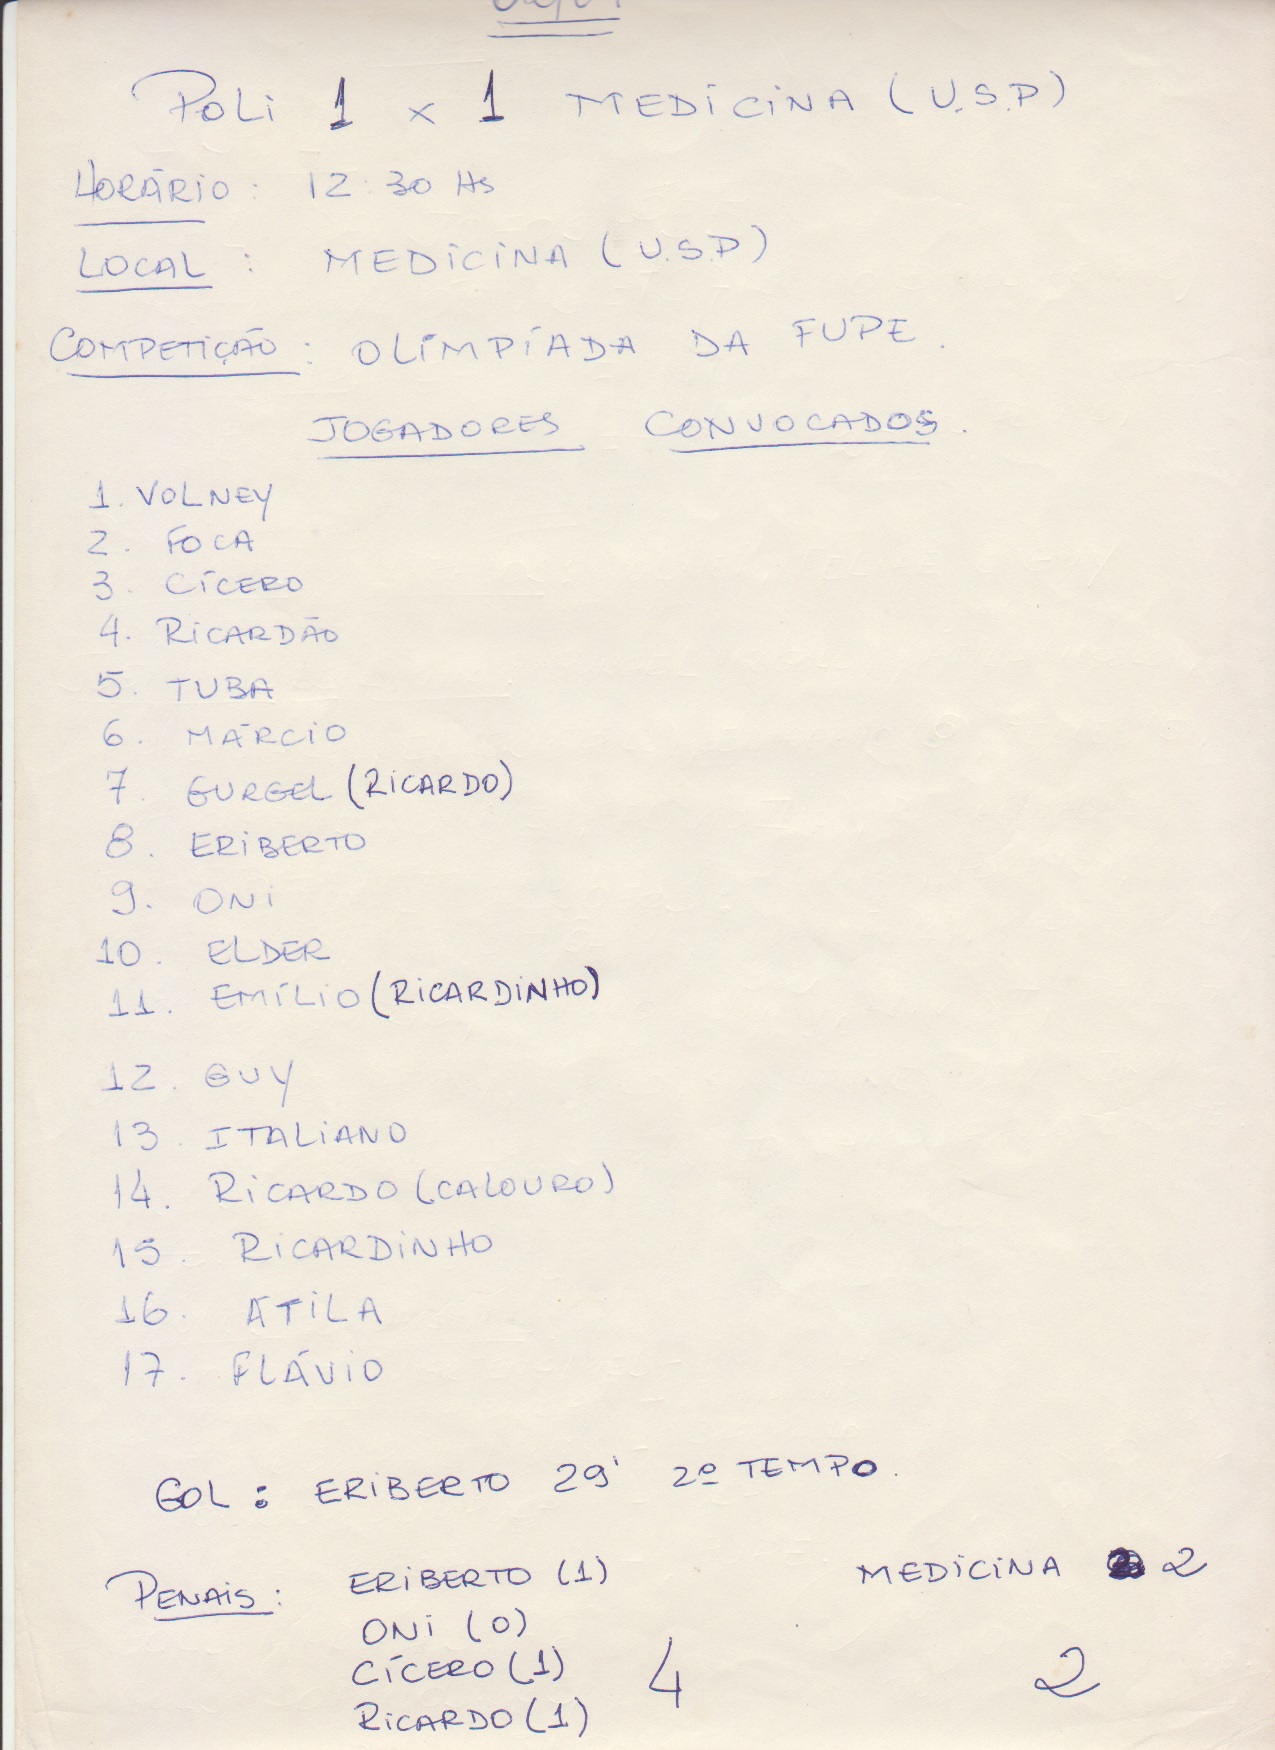 POLI 1 x 1 MEDICINA (U.S.P)
HORÁRIO: 12:30 HS
LOCAL: MEDICINA (U.S.P)
COMPETIÇÃO: OLIMPÍADA DA FUPE.
JOGADORES CONVOCADOS.
1. VOLNEY
2. FOCA
3. CÍCERO
4. RICARDÃO
5. TUBA
6. MÁRCIO
7. GURGEL (RICARDO)
8. ERIBERTO
9. ONI
10. ELDER
11. EMÍLIO (RICARDINHO)
12. GUY
13. ITALIANO
14. RICARDO (CALOURO)
15. RICARDINHO
16. ÁTILA
17. FLÁVIO
GOL: ERIBERTO 29' 2º TEMPO.
PENAIS: ERIBERTO (1) MEDICINA 2
ONI (0)
CÍCERO (1) 4 2
RICARDO (1)